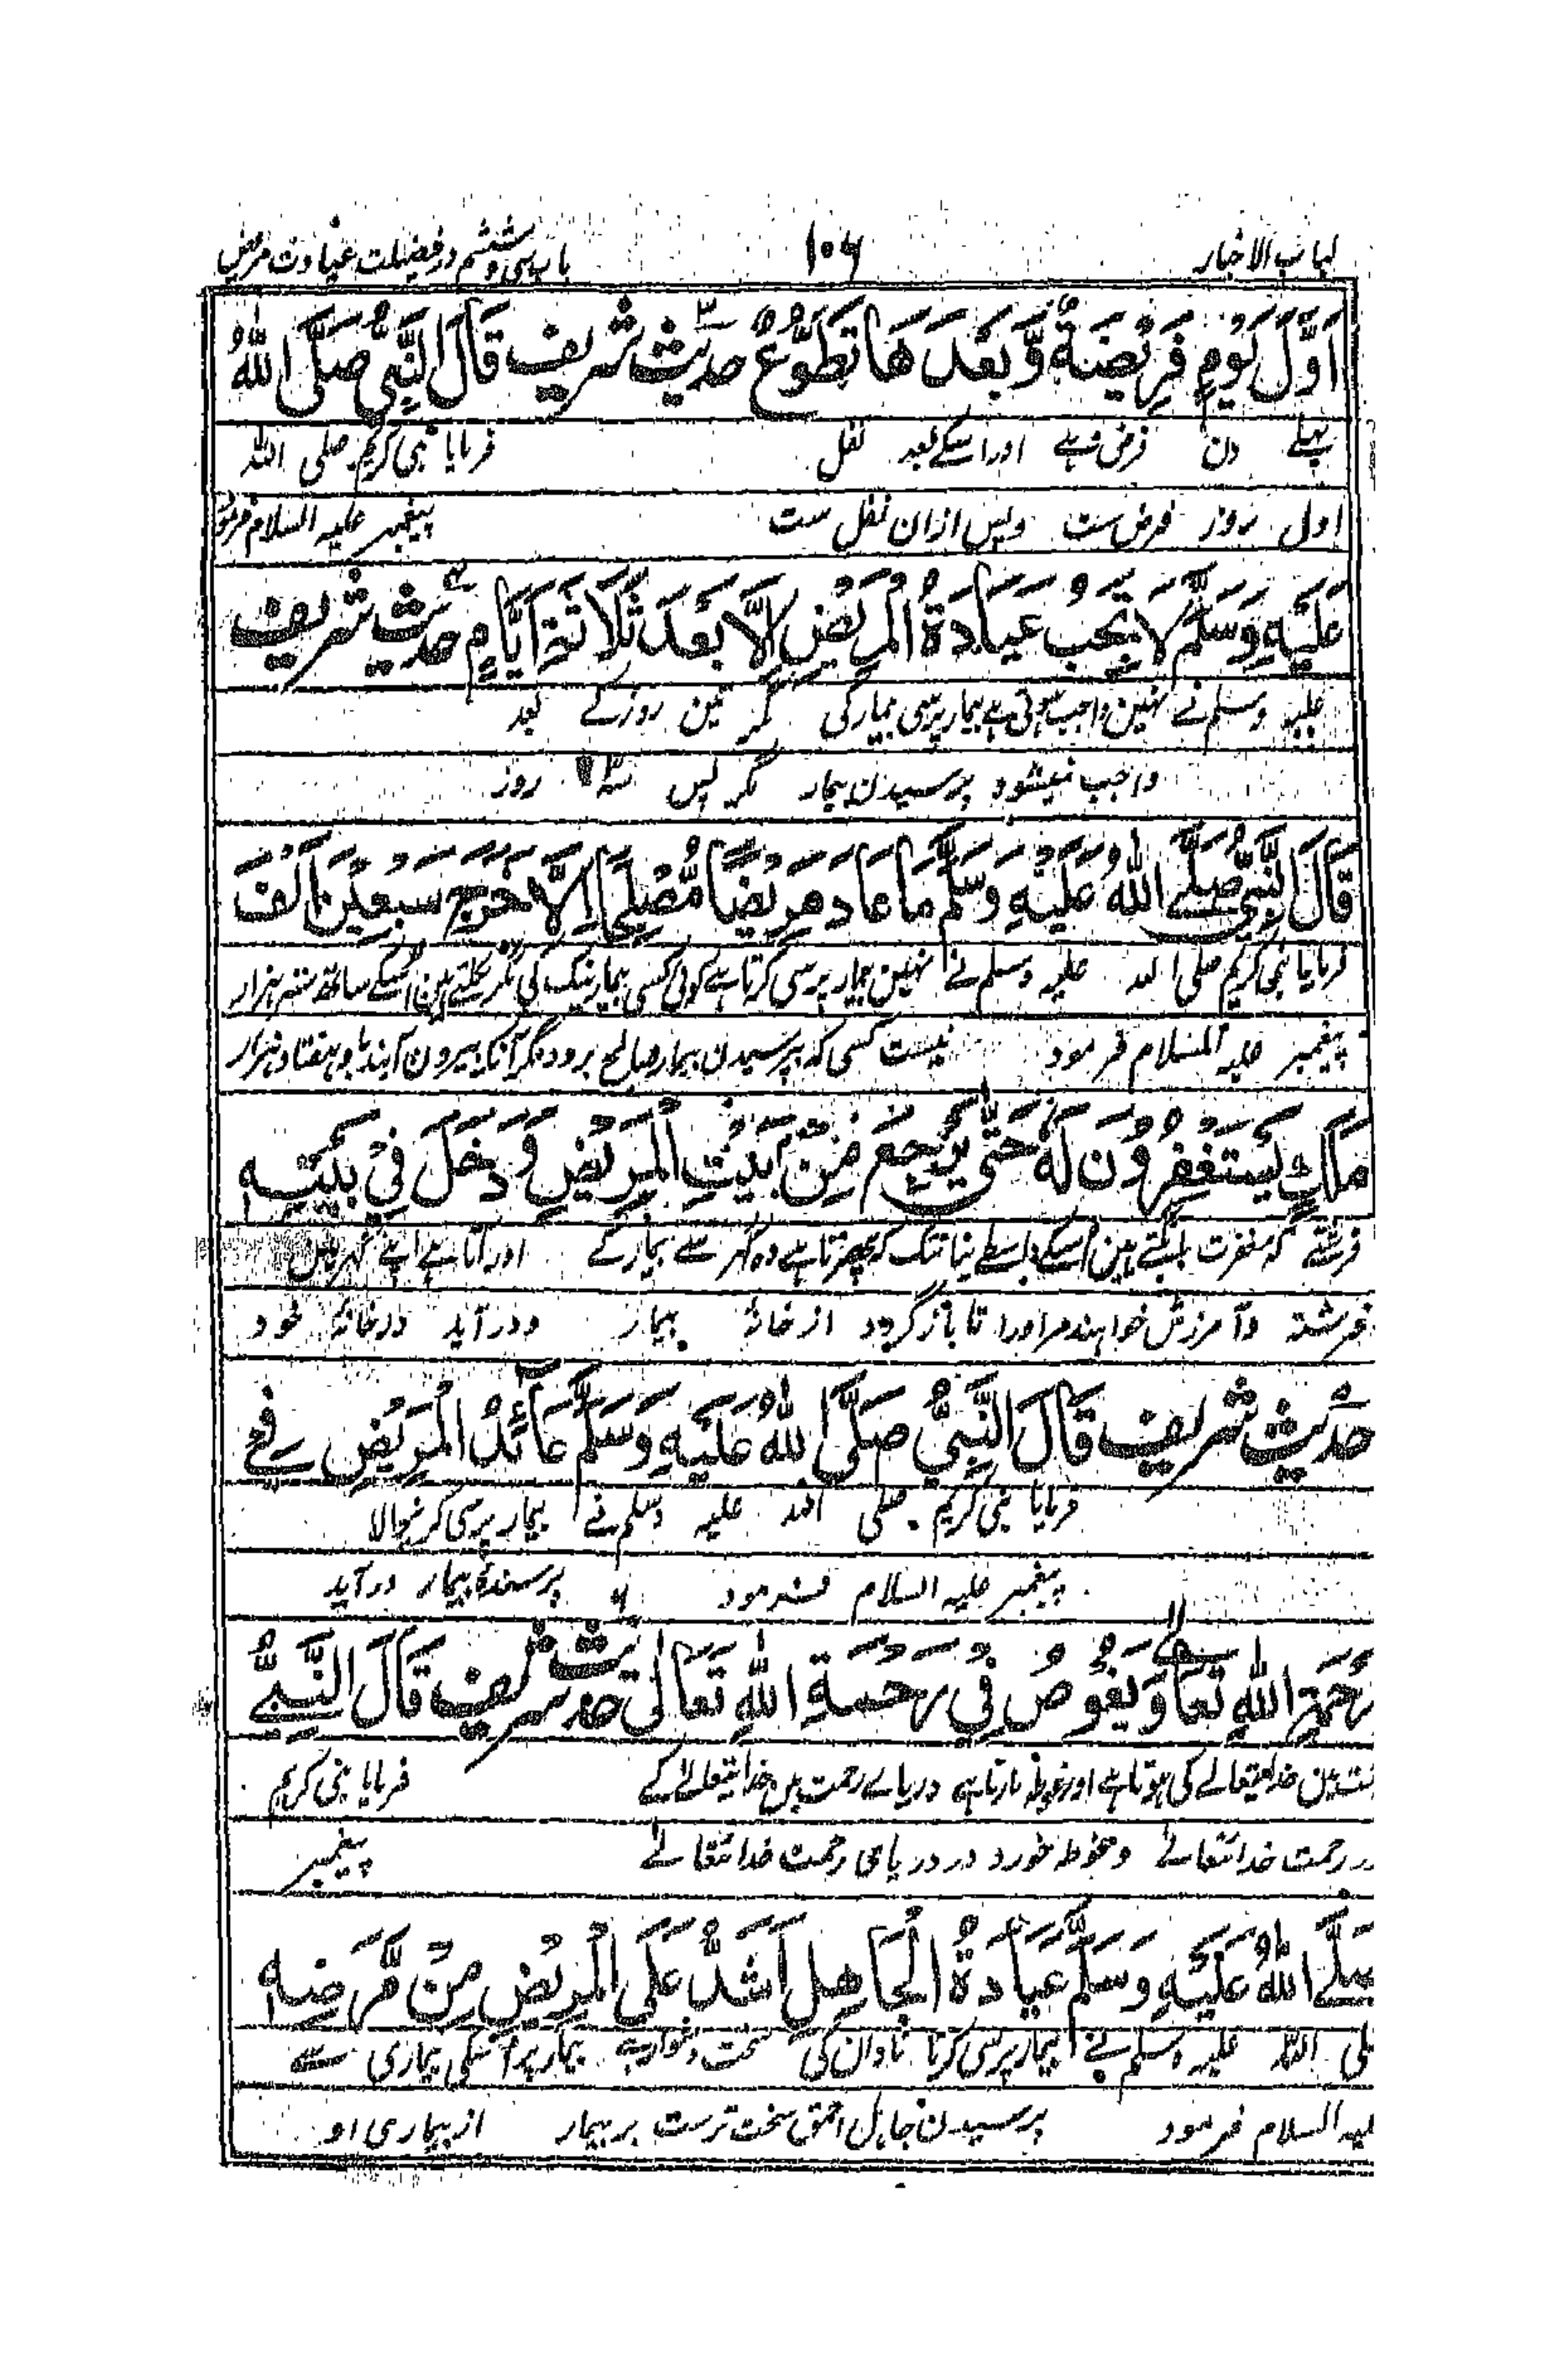 لباب الاخبار ۱۰۶ باب سی و ششم در فضیلت عیادت مریض
اَوَّلَ يَوْمٍ فَرِيْضَةٌ وَّبَعْدَهَا تَطَوُّعٌ حدیث شریف ۳ قَالَ النَّبِيُّ صَلَّى اللهُ
پہلے دن فرض ہے اور اسکے بعد نفل فرمایا نبی کریم صلی اللہ
اول روز فرض ست وپس ازان نفل ست پیغمبر علیہ السلام فرمود
عَلَيْهِ وَسَلَّمَ لَا يَجِبُ عِيَادَةُ الْمَرِيْضِ اِلَّا بَعْدَ ثَلَاثَةِ اَيَّامٍ حدیث شریف
علیہ وسلم نے نہین واجب ہوتی ہے بیمار پرسی بیمار کی مگر تین روز کے بعد
واجب نمیشود پرسیدن بیمار مگر پس سہ روز
قَالَ النَّبِيُّ صَلَّے اللهُ عَلَيْهِ وَسَلَّمَ مَا عَادَ مَرِيْضًا مُّصْلِحًا اِلَّا خَرَجَ سَبْعِيْنَ اَلْفَ
فرمایا نبی کریم صلی اللہ علیہ وسلم نے نہین بیمار پرسی کرتا ہے کوئی کسی بیمار نیک کی مگر نکلتے ہین اسکے ساتھ ستر ہزار
پیغمبر علیہ السلام فرمود نیست کسی کہ بپرسیدن بیمار صالح برود مگر آنکہ بیرون آیند با و ہفتاد ہزار
مَلَكٍ يَسْتَغْفِرُوْنَ لَهٗ حَتّٰى يَرْجِعَ مِنْ بَيْتِ الْمَرِيْضِ وَدَخَلَ فِيْ بَيْتِهٖ
فرشتے کہ مغفرت مانگتے ہین اسکے واسطے یہانتک کہ پھرتا ہے وہ گھر سے بیمار کے اور آتا ہے اپنے گھر مین
فرشتہ وآمرزش خواہند مر اورا تا باز گردد از خانۂ بیمار ودر آید در خانۂ خود
حدیث شریف قَالَ النَّبِيُّ صَلَّى اللهُ عَلَيْهِ وَسَلَّمَ عَآئِدُ الْمَرِيْضِ فِے
فرمایا نبی کریم صلی اللہ علیہ وسلم نے بیمار پرسی کرنیوالا
پیغمبر علیہ السلام فرمود پرسندۂ بیمار در آید
رَحْمَةِ اللهِ تَعَالٰى وَيَغُوْصُ فِيْ رَحْمَةِ اللهِ تَعَالٰى حدیث شریف قَالَ النَّبِيُّ
مت مین خدایتعالے کی ہوتا ہے اور غوطہ مارتا ہے دریاے رحمت مین خدایتعالے کے فرمایا نبی کریم
در رحمت خدایتعالے وغوطہ خورد در دریاے رحمت خدایتعالے پیغمبر
صلَّے اللهُ عَلَيْهِ وَسَلَّمَ عِيَادَةُ الْجَاهِلِ اَشَدُّ عَلَى الْمَرِيْضِ مِنْ مَّرَضِهٖ
لی اللہ علیہ وسلم نے بیمار پرسی کرنا نادان کی سخت دشوار ہے بیمار پر اسکی بیماری سے
لیہ السلام فرمود پرسیدن جاہل احمق سخت ترست بر بیمار از بیماری او